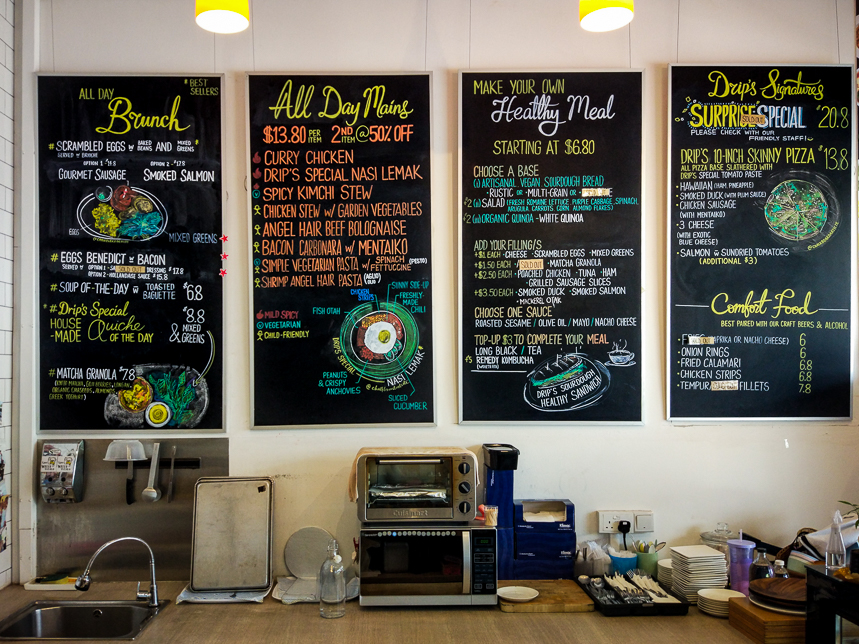 ALL DAY
Brunch
*BEST SELLERS
# SCRAMBLED EGGS W BAKED BEANS AND MIXED GREENS *
SERVED W BRIOCHE
GOURMET SAUSAGE
OPTION 2 -
SMOKED SALMON
EGGS
MIXED GREENS
# EGGS BENEDICT W BACON
SOLD OUT DRESSING
OPTION 2 - HOLLANDAISE SAUCE $15.8
# SOUP-OF-THE-DAY W TOASTED BAGUETTE $6.8
# Drip's Special
HOUSE -MADE Quiche OF THE DAY
$8.8 & MIXED GREENS
#MATCHA GRANOLA $7.8
GREEK YOGHURT)
All Day Mains
$13.80 PER ITEM 2ND ITEM @50% OFF
CURRY CHICKEN
DRIP'S SPECIAL NASI LEMAK
SPICY KIMCHI STEW
CHICKEN STEW W/ GARDEN VEGETABLES
ANGEL HAIR BEEF BOLOGNAISE
BACON CARBONARA W/ MENTAIKO
SIMPLE VEGETARIAN PASTA W/ SPINACH FETTUCCINE (PESTO)
SHRIMP ANGEL HAIR PASTA (AGLIO OLIO)
MILD SPICY
VEGETARIAN
CHILD-FRIENDLY
CHICKEN STRIPS
SUNNY SIDE-UP
FRESHLY-MADE CHILI
FISH OTAH
DRIP'S SPECIAL
NASI LEMAK
PEANUTS & CRISPY ANCHOVIES
SLICED CUCUMBER
MAKE YOUR OWN
Healthy Meal
STARTING AT $6.80
CHOOSE A BASE
(1) ARTISANAL VEGAN SOURDOUGH BREAD
-RUSTIC OR -MULTI-GRAIN OR -
+$2 (1) SALAD (FRESH ROMAINE LETTUCE, PURPLE CABBAGE, SPINACH, ARUGULA, CARROTS, CORN, ALMOND FLAKES)
+$2 (1) ORGANIC QUINOA -WHITE QUINOA
ADD YOUR FILLING/S
+$1 EACH -CHEESE -SCRAMBLED EGGS -MIXED GREENS
+$1.50 EACH - SOLD OUT -MATCHA GRANOLA
+$2.50 EACH -POACHED CHICKEN -TUNA -HAM
-GRILLED SAUSAGE SLICES
+$3.50 EACH -SMOKED DUCK -SMOKED SALMON
-MACKEREL OTAK
CHOOSE ONE SAUCE
ROASTED SESAME / OLIVE OIL / MAYO / NACHO CHEESE
TOP-UP $3 TO COMPLETE YOUR MEAL
LONG BLACK / TEA
REMEDY KOMBUCHA
DRIP'S SOURDOUGH
HEALTHY SANDWICH
Drip's Signatures
SURPRISE SPECIAL $20.8
PLEASE CHECK WITH OUR
FRIENDLY STAFF!
DRIP'S 10-INCH SKINNY PIZZA $13.8
ALL PIZZA BASE SLATHERED WITH
DRIP'S SPECIAL TOMATO PASTE
-HAWAIIAN (HAM, PINEAPPLE)
-SMOKED DUCK (WITH PLUM SAUCE)
-CHICKEN SAUSAGE
(WITH MENTAIKO)
-3 CHEESE
(WITH EXOTIC
BLUE CHEESE)
-SALMON W SUNDRIED TOMATOES
(ADDITIONAL $3)
Comfort Food
BEST PAIRED WITH OUR CRAFT BEERS & ALCOHOL
PAPRIKA OR NACHO CHEESE) 6
-ONION RINGS 6
-FRIED CALAMARI 6.8
-CHICKEN STRIPS 6.8
-TEMPURA FILLETS 7.8
Cuisinart
Kleenex